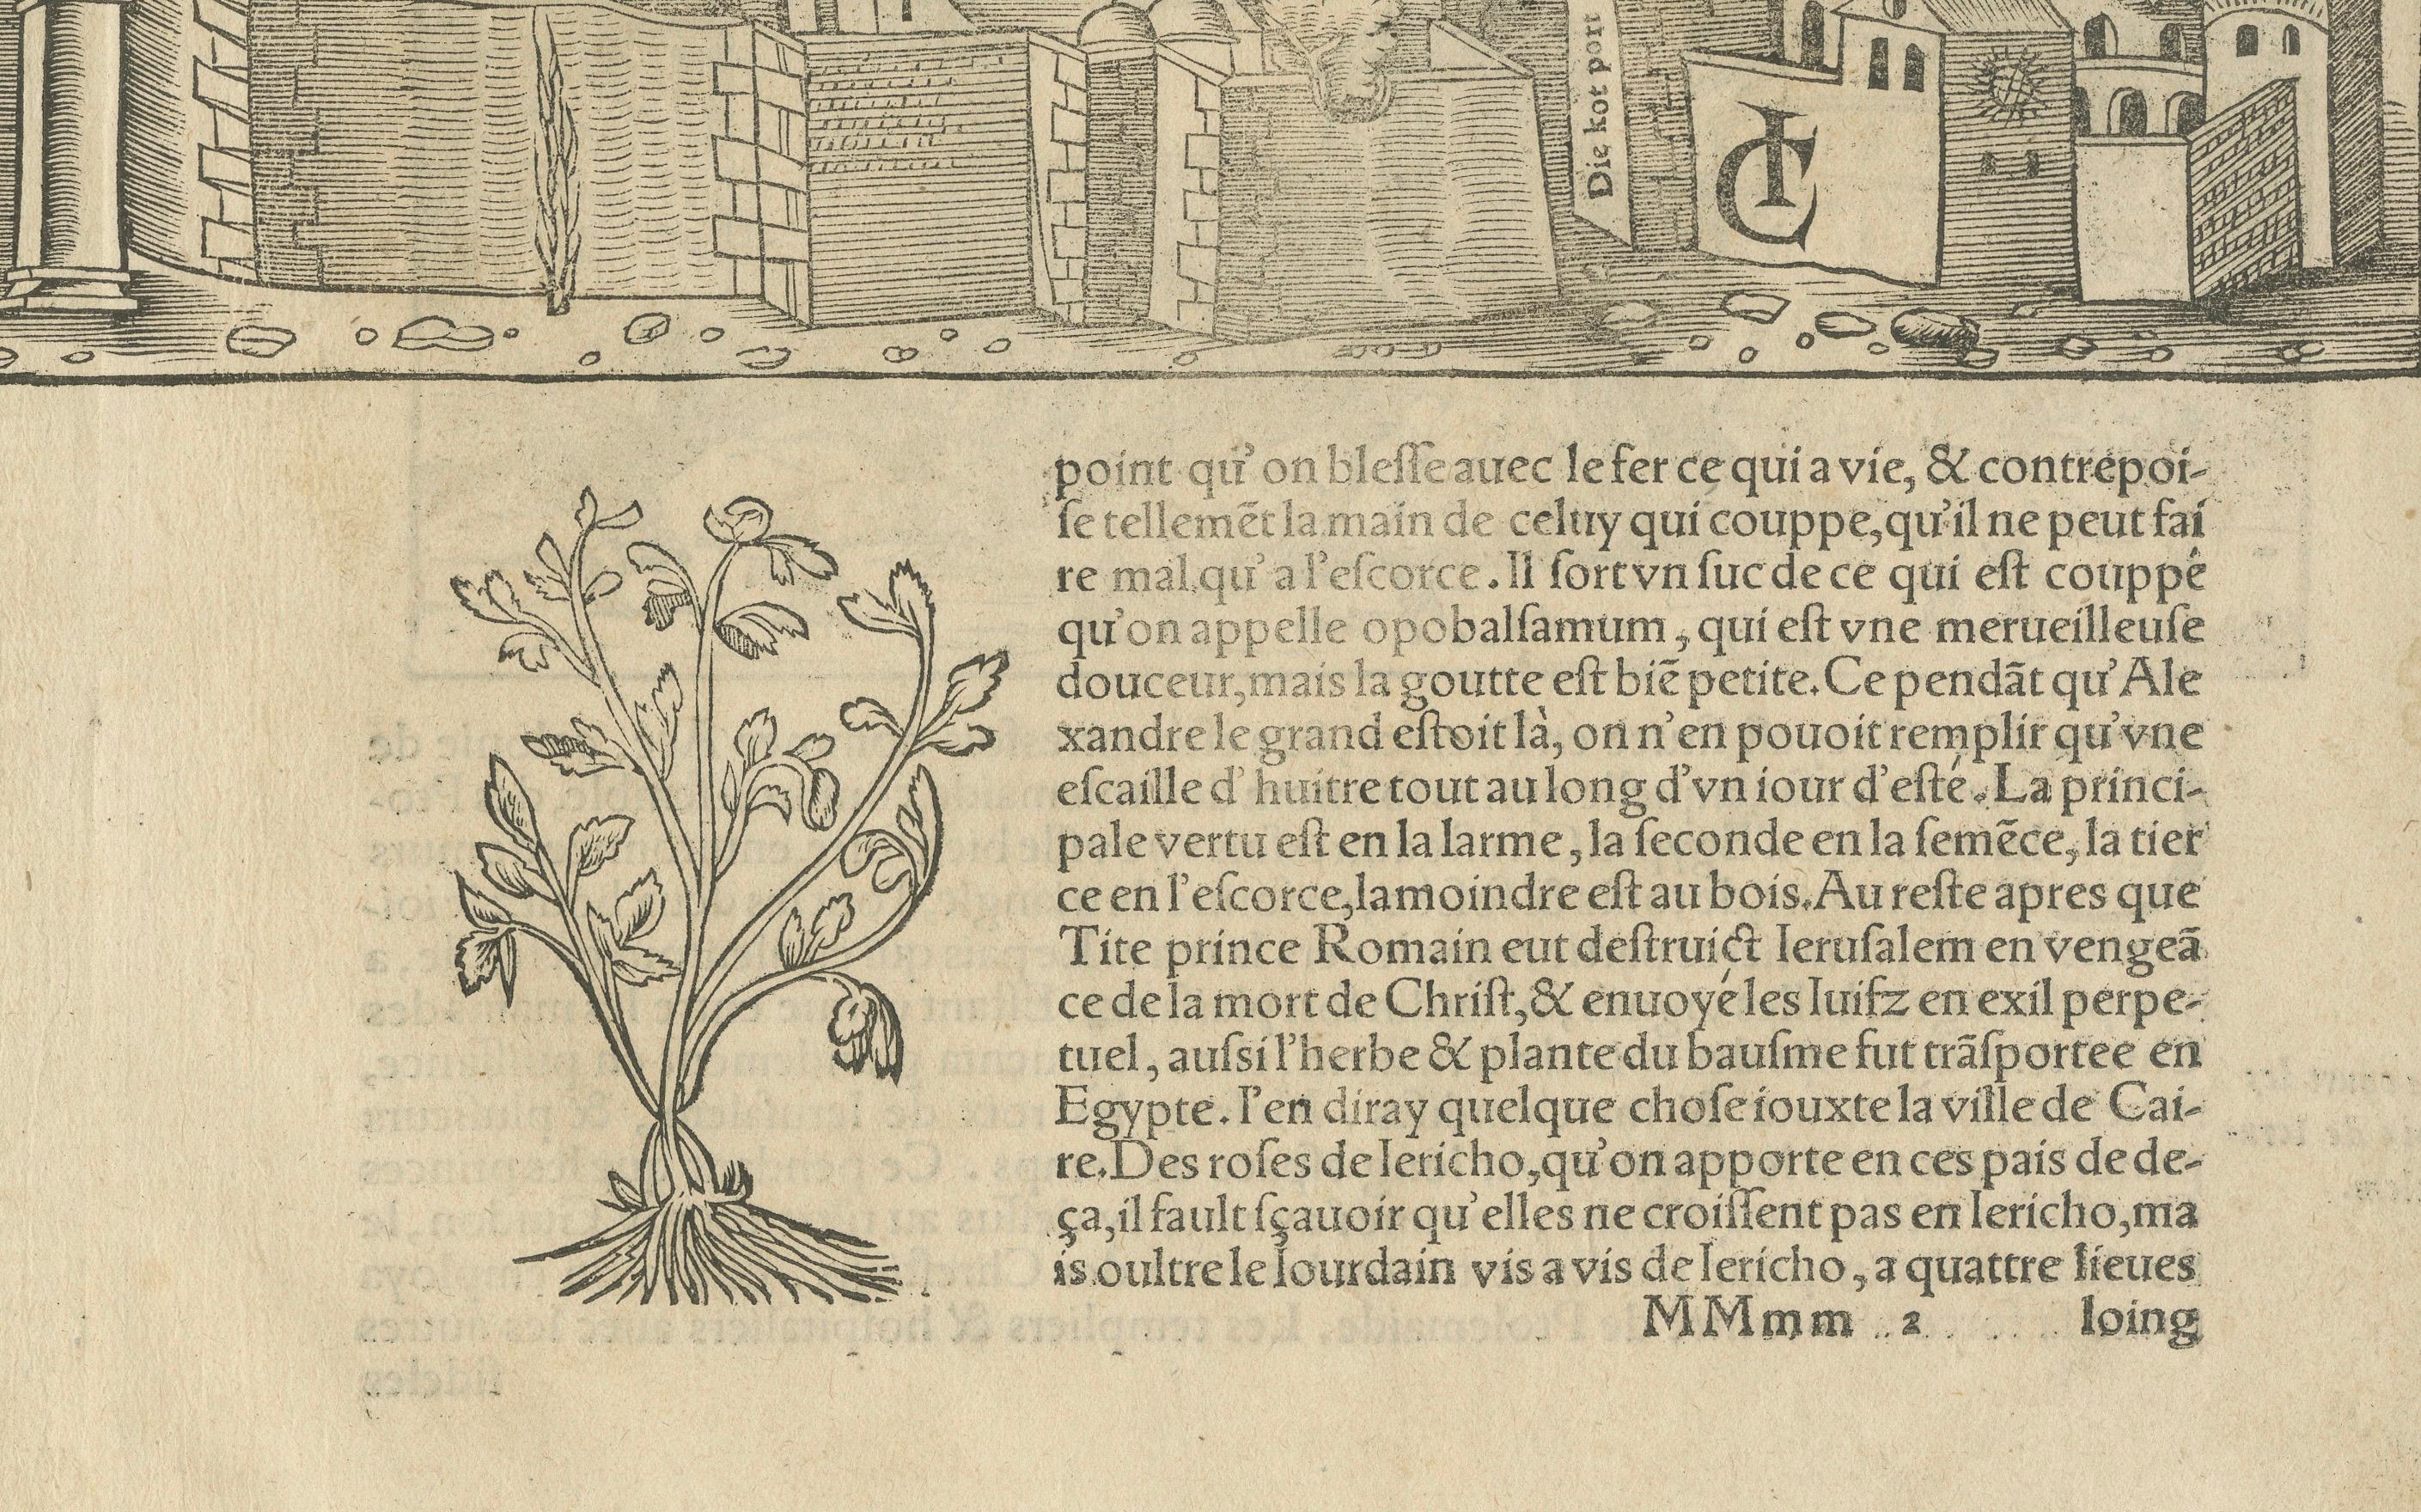 Die kot port
IC
point qu'on bleſſe auec le fer ce qui a vie, & contrepoi-
ſe tellemẽt la main de celuy qui couppe, qu'il ne peut fai
re mal qu'a l'eſcorce. Il ſort vn ſuc de ce qui eſt couppé
qu'on appelle opobalſamum, qui eſt vne merueilleuſe
douceur, mais la goutte eſt biẽ petite. Ce pendãt qu'Ale
xandre le grand eſtoit là, on n'en pouoit remplir qu'vne
eſcaille d'huitre tout au long d'vn iour d'eſté. La princi-
pale vertu eſt en la larme, la ſeconde en la ſemẽce, la tier
ce en l'eſcorce, la moindre eſt au bois. Au reſte apres que
Tite prince Romain eut deſtruict Ieruſalem en vengeã
ce de la mort de Chriſt, & enuoyé les Iuifz en exil perpe-
tuel, auſsi l'herbe & plante du bauſme fut trãſportee en
Egypte. I'en diray quelque choſe iouxte la ville de Cai-
re. Des roſes de Iericho, qu'on apporte en ces pais de de-
ça, il fault ſçauoir qu'elles ne croiſſent pas en Iericho, ma
is oultre le Iourdain vis a vis de Iericho, a quattre lieues
MMmm 2 loing